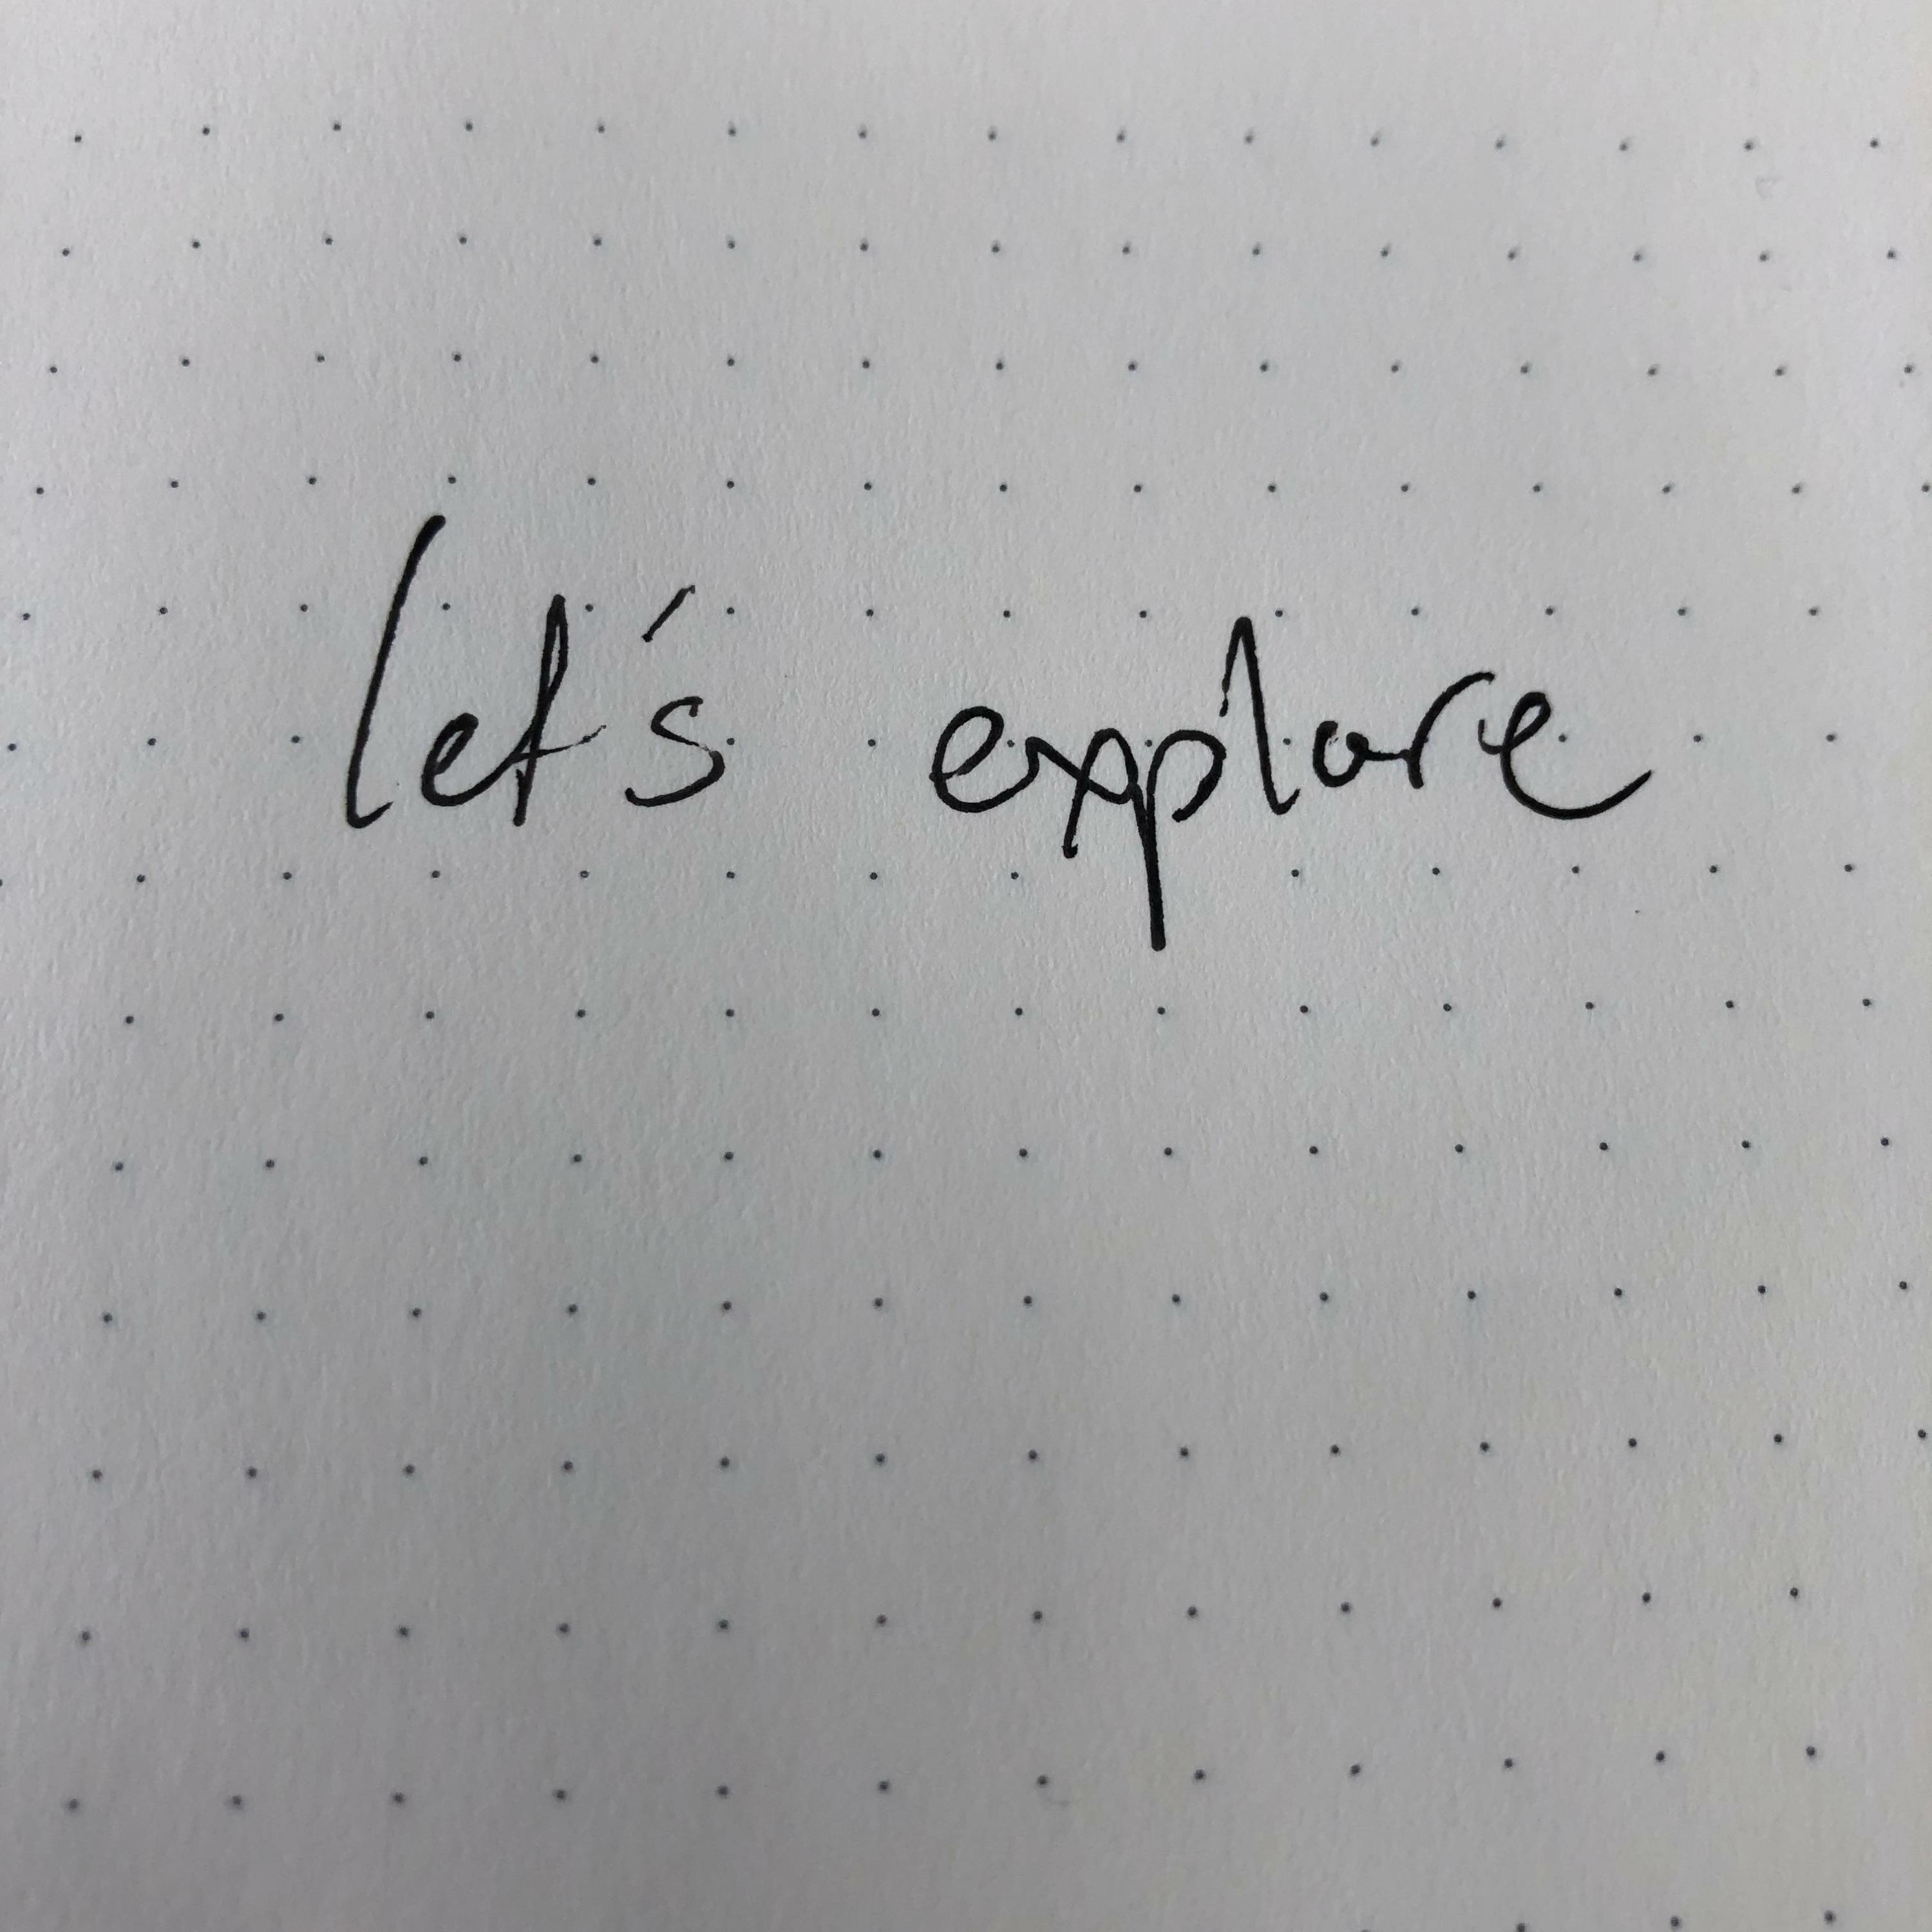 let's explore